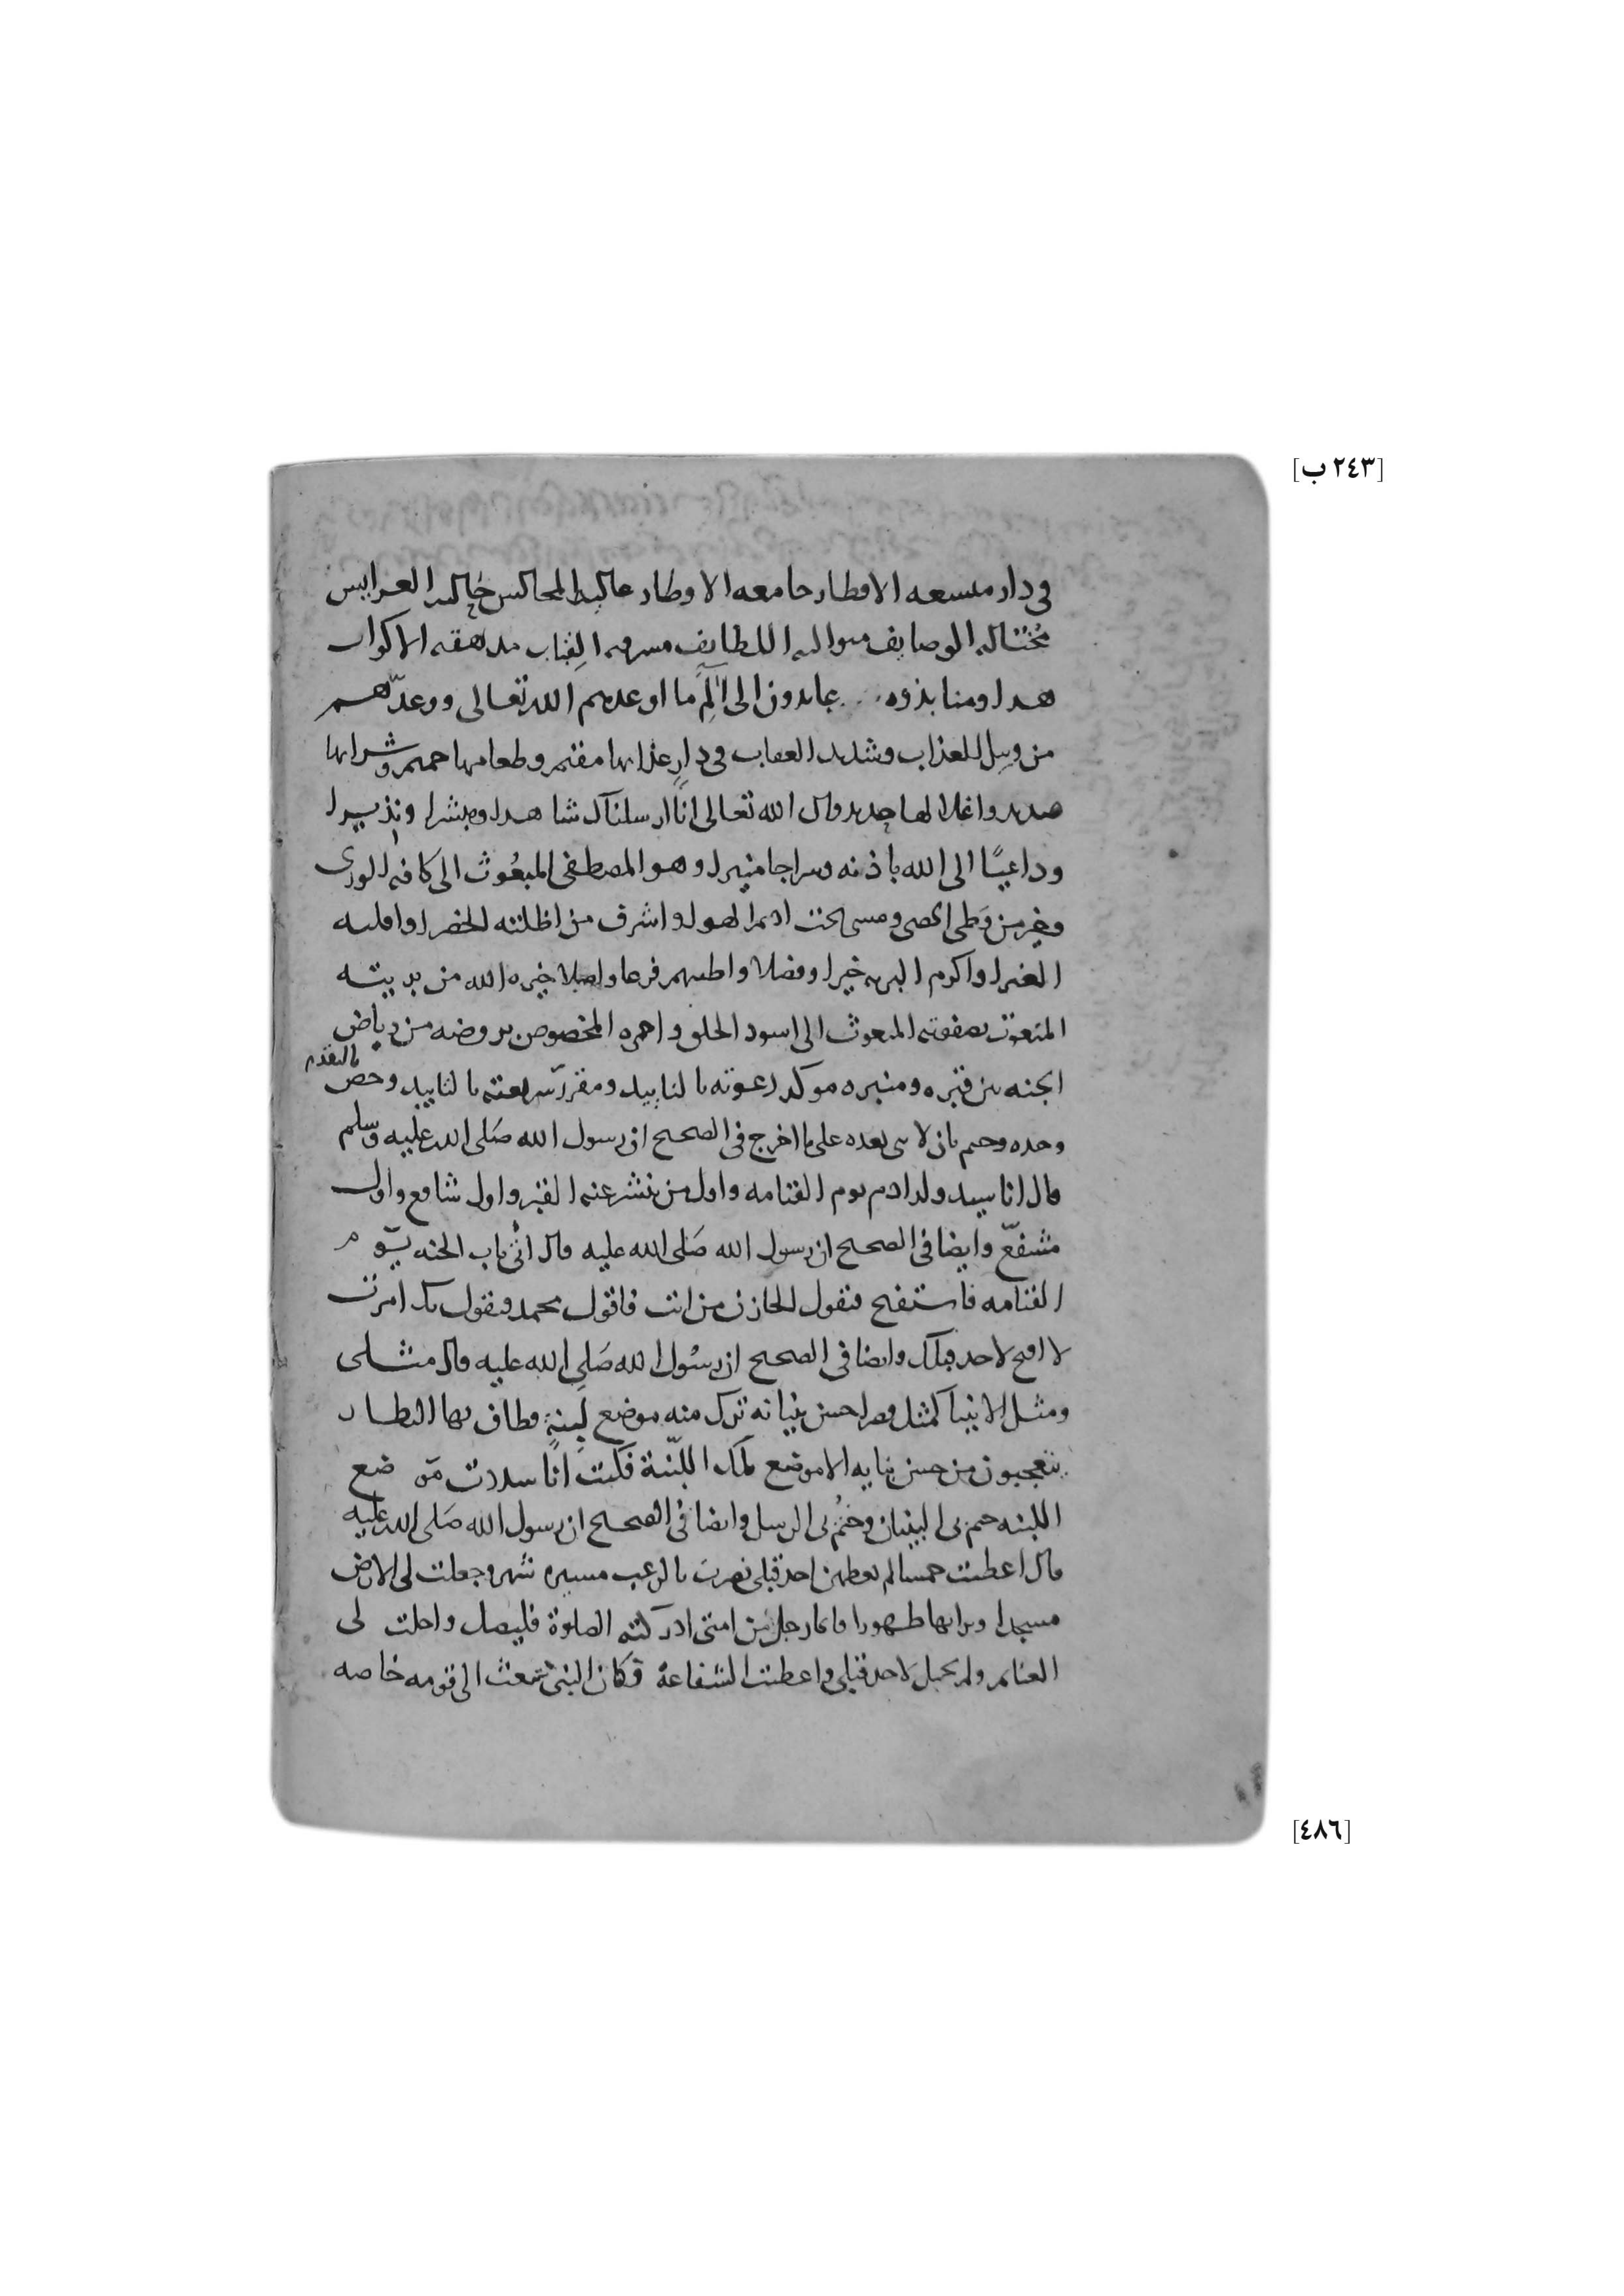 [٢٤٣ ب]
في دار متسعه الاقطار جامعه الاوطار عاليه المجالس حاليه العرايس
مختاله الوصايف متواليه اللطايف مسرفه القباب مدهقه الاكواب
هدا ومنابذوه عايدون الى اليم ما اوعدهم الله تعالى ووعدهم
من وبيل العذاب وشديد العقاب في دار عذابها مقيم وطعامها حميم وشرابها
صديد واغلالها حديد وقال الله تعالى انا ارسلناك شاهدا ومبشرا ونذيرا
وداعيا الى الله باذنه وسراجا منيرا وهو المصطفى المبعوث الى كافه الورى
وخير من وطى الحصى ومسى تحت اديم الهوا واشرف من اظلته الخضرا واقلته
الغبرا واكرم البريه خيرا وفضلا واطيبهم فرعا واصلا خيره الله من بريته
المنعوت بصفوته المبعوث الى اسود الخلق واحمره المخصوص بروضه من رياض
الجنه بين قبره ومنبره موكد دعوته بالتاييد ومقرر شريعته بالتابيد وخص بالتقدم
وحده وختم بان لا نبى بعده على ما اخرج في الصحيح ان رسول الله صلى الله عليه وسلم
قال انا سيد ولد ادم يوم القيامه واول من ينشر عنه القبر واول شافع واول
مشفع وايضا في الصحيح ان رسول الله صلى الله عليه قال اتى باب الجنه يوم
القيامه فاستفتح فيقول الخازن من انت فاقول محمد فيقول بك امرت
لا افتح لاحد قبلك وايضا في الصحيح ان رسول الله صلى الله عليه قال مثلى
ومثل الانبيا كمثل قصر احسن بنيانه ترك منه موضع لبنة فطاف بها النظار
يتعجبون من حسن بنايه الا موضع تلك اللبنة فكنت انا سددت موضع
اللبنه ختم بى البنيان وختم بى الرسل وايضا في الصحيح ان رسول الله صلى الله عليه
قال اعطيت خمسا لم يعطهن احد قبلى نصرت بالرعب مسيره شهر وجعلت لى الارض
مسجدا وترابها طهورا فايما رجل من امتى ادركته الصلوة فليصل واحلت لى
الغنايم ولم تحل لاحد قبلى واعطيت الشفاعة وكان النبى يبعث الى قومه خاصه
[٤٨٦]